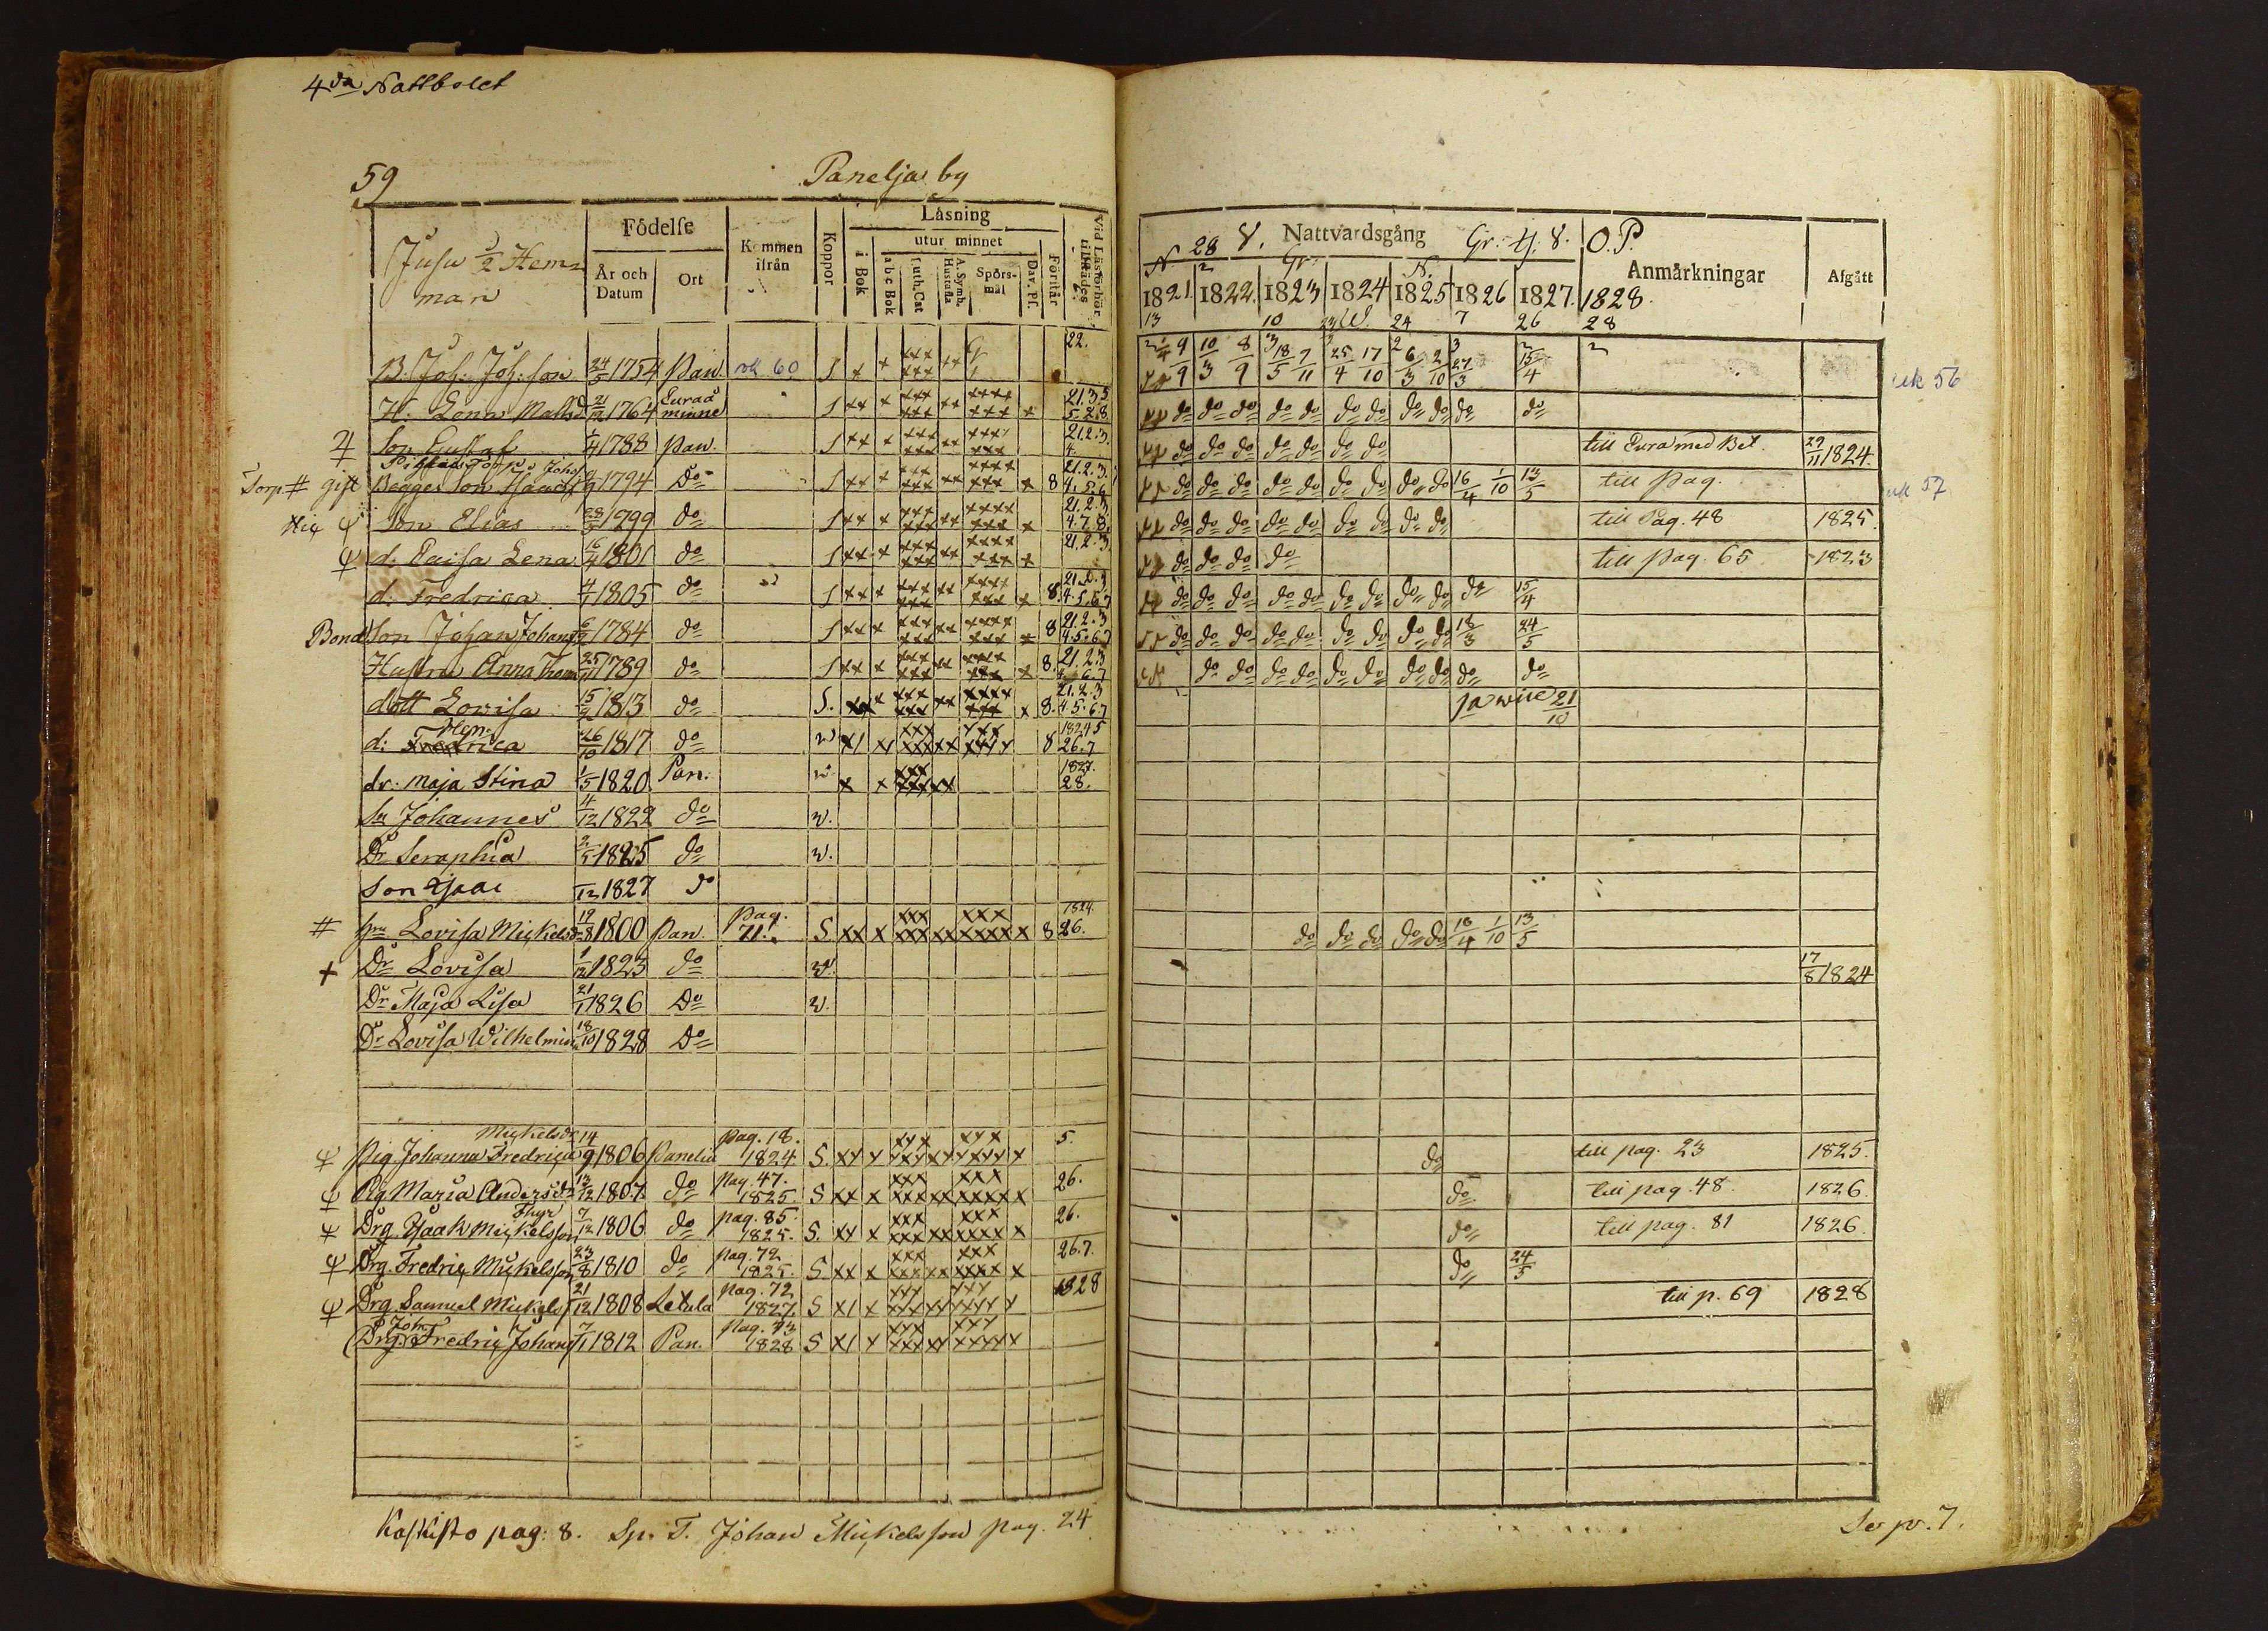 4da Nattbolet
59
Panelja by
Jusu 1/2 Hem=
man
Födelse
År och Datum
Ort
Kommen ifrån
Koppor
Läsning
i Bok
utur minnet
a b c Bok
Luth. Cat
A. Symb. Hustafla
Spörs-mål
Dav. Ps.
Förstår
Vid Läsförhör tillstädes
B. Joh: Joh:son 24/5 1754 Pan. vk 60 S 22.
H. Lena Matsd 21/12 1764 Euraå minne S 21.3.5 5.2.8
Son Gustaf 1/4 1788 Pan. S 21.2.3. 4.
Torp. # gift Son Isaac 1794 Do S 8 21.2.3 4.5.6
Son Elias 28/3 1799 do S 21.2.3. 4.7.8
d. Caisa Lena 16/4 1801 do S 21.2.3.
d. Fredrica 4/1 1805 do S 8. 21.2.3 4.5.6.7
Bond Son Johan Johans 1784 do S 8 21.2.3 4.5.6.7
Hustru Anna 25/11 1789 do S 8. 21.2.3 4.6.7
dott Lovisa 15/2 1813 do S. 8. 21.2.3 4.5.6.7
d: Fredrica 26/10 1817 do w 8 1824 5 26.7
dr. Maja Stina 1/5 1820 Pan. w 1827. 28.
Sn Johannes 4/12 1822 do w.
Dr Seraphia 2/5 1825 do w.
Son Isaac /12 1827 do
# hru Lovisa Mickelsd 19/8 1800 Pan. Pag. 71. S 8 1824. 26.
+ Dr Lovisa 1/12 1823 do w.
Dr Maja Lisa 21/1 1826 Do w.
Dr Lovisa Wilhelmina 18/10 1828 Do
Mickelsdr
Pig. Johanna Fredrica 14/9 1806 Panelia pag. 18. 1824 S. 5.
Pig Maria Andersdr 13/12 1807 do pag. 47. 1825. S 26.
Drg. Isaak Mickelsson 7/12 1806 do pag. 85. 1825. S. 26.
Drg. Fredric Mickelsson 23/8 1810 do pag. 72 1825. S 26.7.
Drg. Samuel Mickels 21/12 1808 Letula pag. 72 1827. S 1828
Drg. Fredric Johans 7/1 1812 Pan. pag. 43 1828 S
Kaskisto pag: 8. Sp. T. Johan Mickelsson pag. 24
N. 28 V. Nattvardsgång Gr. Y. V. O. P.
Gr. N.
Anmärkningar
Afgått
1821. 1822. 1823 1824 1825 1826 1827. 1828.
13 10 23 W. 24 7 26 28
9/9 10/3 8/9 18/5 7/11 25/4 17/10 6/3 2/10 27/3 15/4
uk 56
do do do do do do do do do do do
do do do do do do do till Eura med Bet. 29/11 1824.
do do do do do do do do do 16/4 1/10 13/5 till Pag. uk 57
do do do do do do do do do till Pag. 48 1825.
do do do do till pag. 65 1823
do do do do do do do do do do 15/4
do do do do do do do do do 18/3 24/5
do do do do do do do do do do
21/10
do do do do do 16/4 1/10 13/5
17/8 1824
do till pag. 23 1825.
do till pag. 48 1826
do till pag. 81 1826.
do 24/5
till p. 69 1828
Se p. 7.